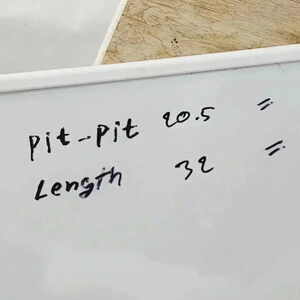 Pit-Pit 20.5 =
Length 32 =